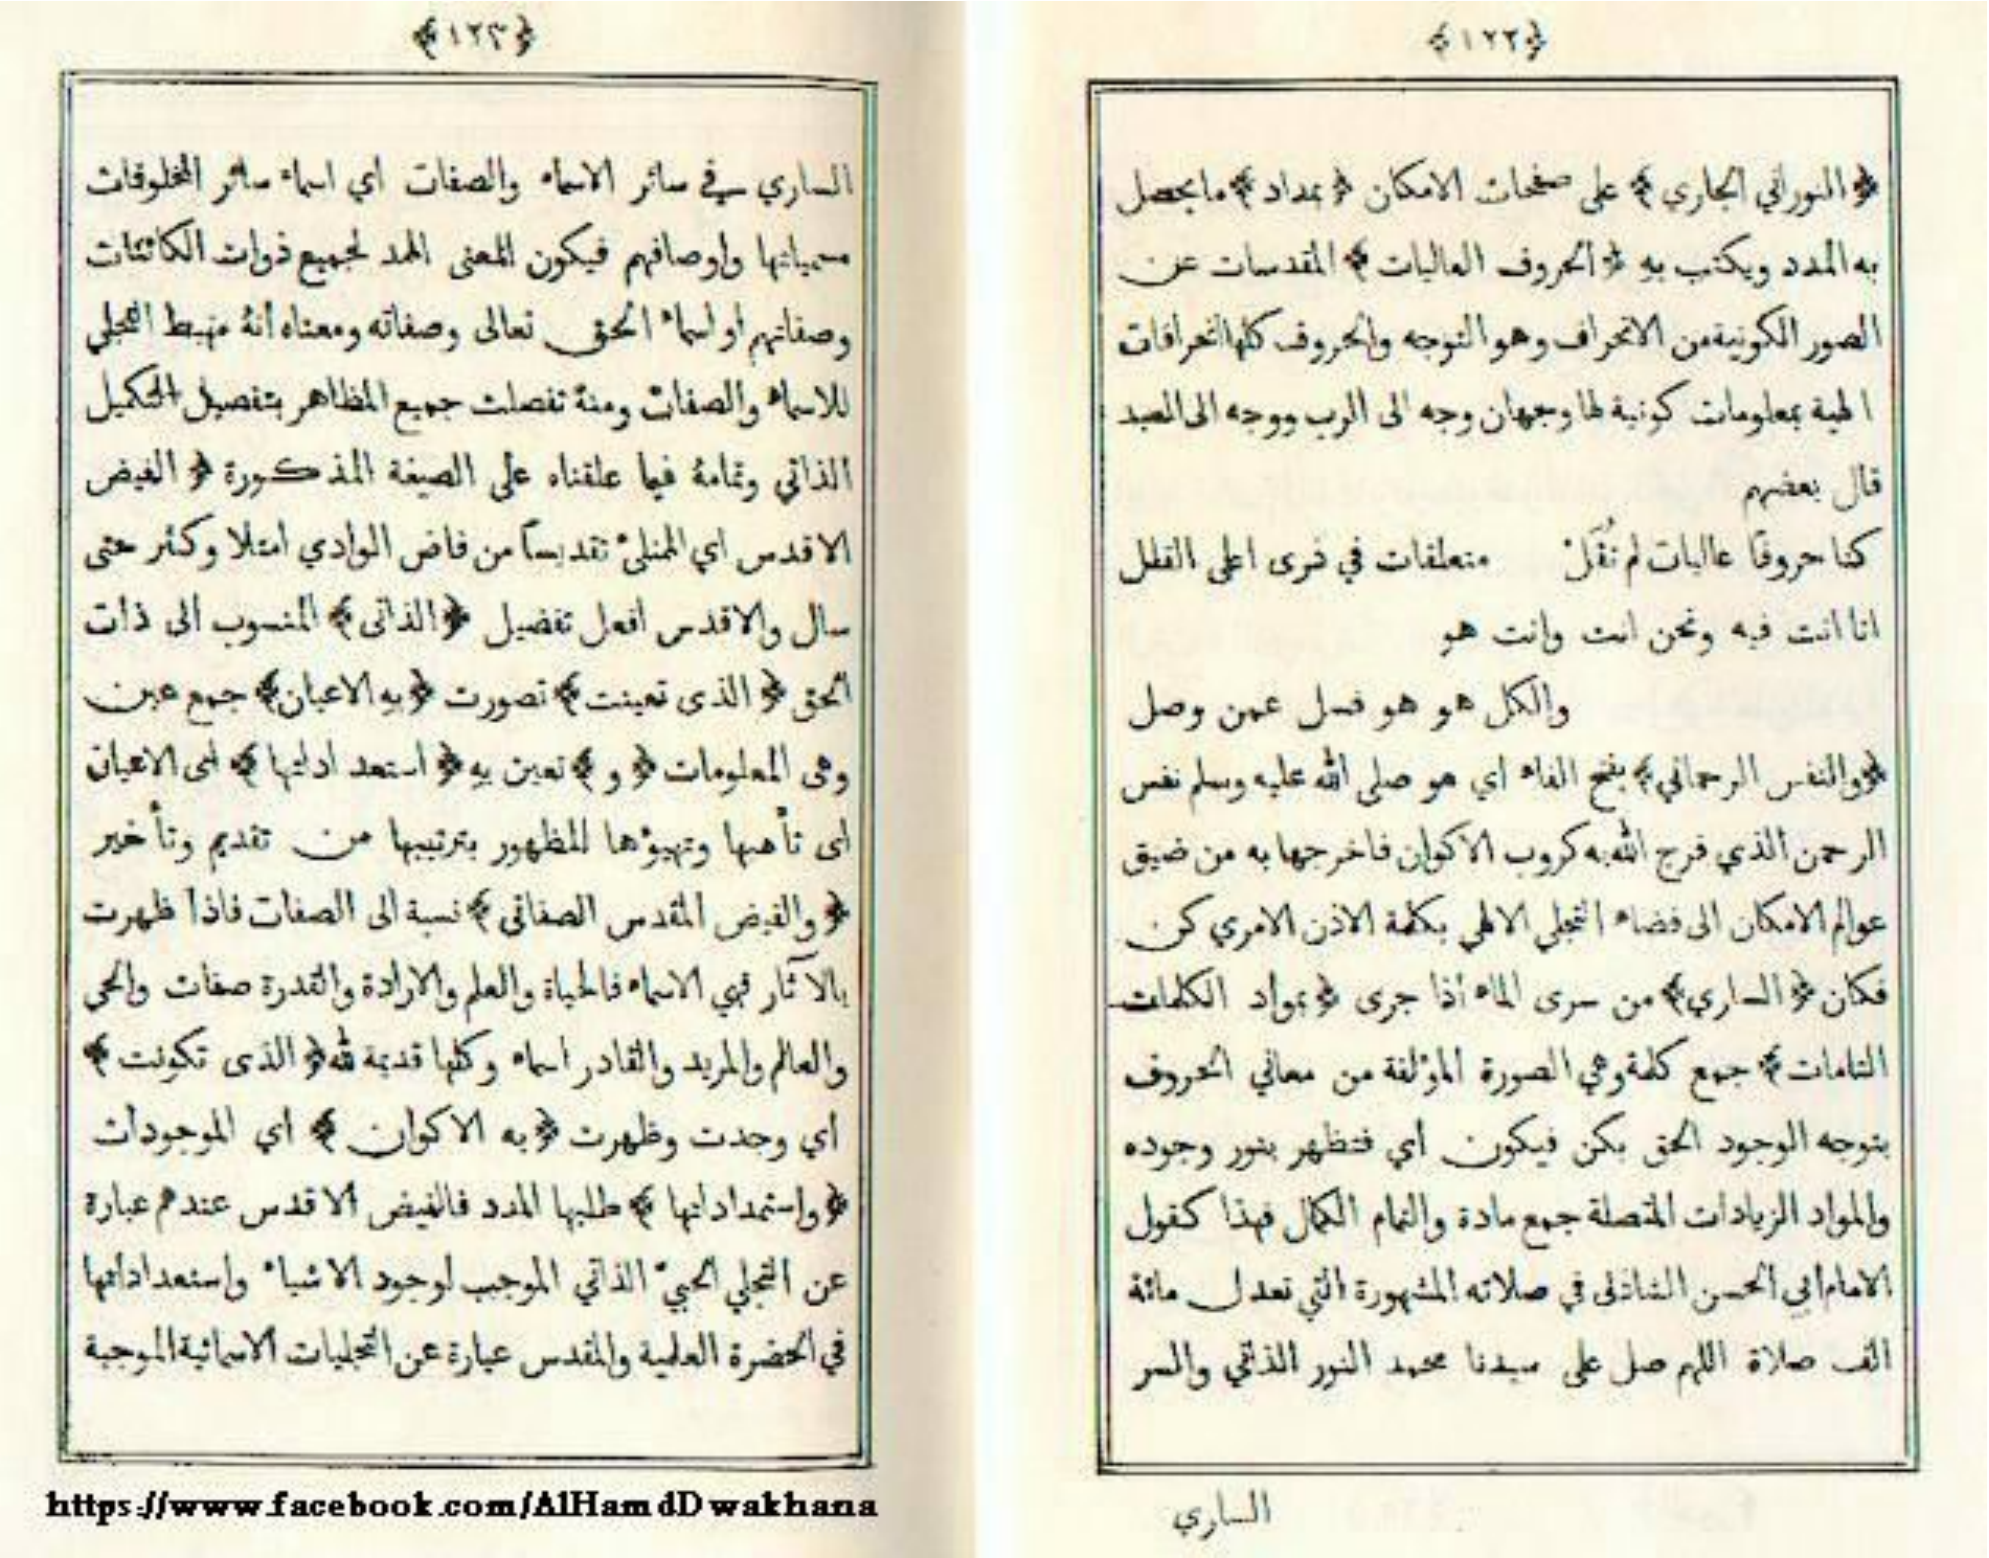 ﴿١٢٢﴾
﴿ النوراني الجاري ﴾ على صفحات الامكان ﴿ بمداد ﴾ ما يحصل
به المدد ويكتب به ﴿ الحروف العاليات ﴾ المقدسات عن
الصور الكونية من الانحراف وهو التوجه والحروف كلها انحرافات
الهية بمعلومات كونية لها وجهان وجه الى الرب ووجه الى العبد
قال بعضهم
كنا حروفًا عاليات لم نُقَلْ متعلقات في ذرى اعلى القلل
انا انت فيه ونحن انت وانت هو
والكل هو هو فسل عمن وصل
﴿ والنفس الرحماني ﴾ بفتح الفاء اي هو صلى الله عليه وسلم نفس
الرحمن الذي فرج الله به كروب الاكوان فاخرجها به من ضيق
عوالم الامكان الى فضاء التجلي الالهي بكلمة الاذن الامري كن
فكان ﴿ الساري ﴾ من سرى الماء اذا جرى ﴿ بمواد الكلمات
التامات ﴾ جمع كلمة وهي الصورة المؤلفة من معاني الحروف
بتوجه الوجود الحق بكن فيكون أي فتظهر بنور وجوده
والمواد الزيادات المتصلة جمع مادة والتمام الكمال فهذا كقول
الامام ابي الحسن الشاذلى في صلاته المشهورة التي تعدل مائة
الف صلاة اللهم صل على سيدنا محمد النور الذاتي والسر
الساري
﴿١٢٣﴾
الساري في سائر الاسماء والصفات اي اسماء سائر المخلوقات
مسمياتها واوصافهم فيكون المعنى الممد لجميع ذوات الكائنات
وصفاتهم او اسماء الحق تعالى وصفاته ومعناه أنهُ مهبط التجلي
للاسماء والصفات ومنهُ تفصلت جميع المظاهر بتفصيل التكميل
الذاتي وتمامهُ فيما علقناه على الصيغة المذكورة ﴿ الفيض
الاقدس اي الممتلئ تقديساً من فاض الوادي امتلا وكثر حتى
سال والاقدس أفعل تفضيل ﴿ الذاتى ﴾ المنسوب الى ذات
الحق ﴿ الذى تعينت ﴾ تصورت ﴿ به الاعيان ﴾ جمع عين
وهى المعلومات ﴿ و ﴾ تعين به ﴿ استعداداتها ﴾ اى الاعيان
اى تأهبها وتهيؤها للظهور بترتيبها من تقديم وتأخير
﴿ والفيض المقدس الصفاتي ﴾ نسبة الى الصفات فاذا ظهرت
بالآثار فهي الاسماء فالحياة والعلم والارادة والقدرة صفات والحى
والعالم والمريد والقادر اسماء وكلها قديمة لله ﴿ الذى تكونت ﴾
أي وجدت وظهرت ﴿ به الاكوان ﴾ أي الموجودات
﴿ واستمداداتها ﴾ طلبها المدد فالفيض الاقدس عندهم عبارة
عن التجلي الحبيّ الذاتي الموجب لوجود الاشياء واستعداداتها
في الحضرة العلمية والمقدس عبارة عن التجليات الاسمائية الموجبة
https://www.facebook.com/AlHamdDwakhana